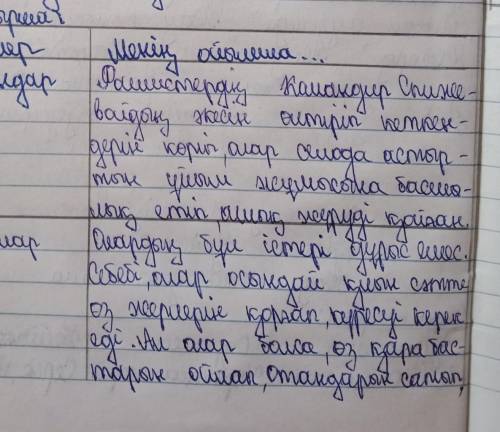 Менің ойымша...
Фашистердің Командир Спиже-
вайдың жесін өлтіріп кеткен-
дерін көріп, олар селода астыр-
тын ұйым жұмысына басшы-
лық етіп,
Олардың бұл істері дұрыс емес.
Себебі, олар осындай қиын сәтте
өз жерлеріне қорған, күресуі керек
еді. Ал олар болса, өз қара бас-
тарын ойлап, Отандарын сатып,